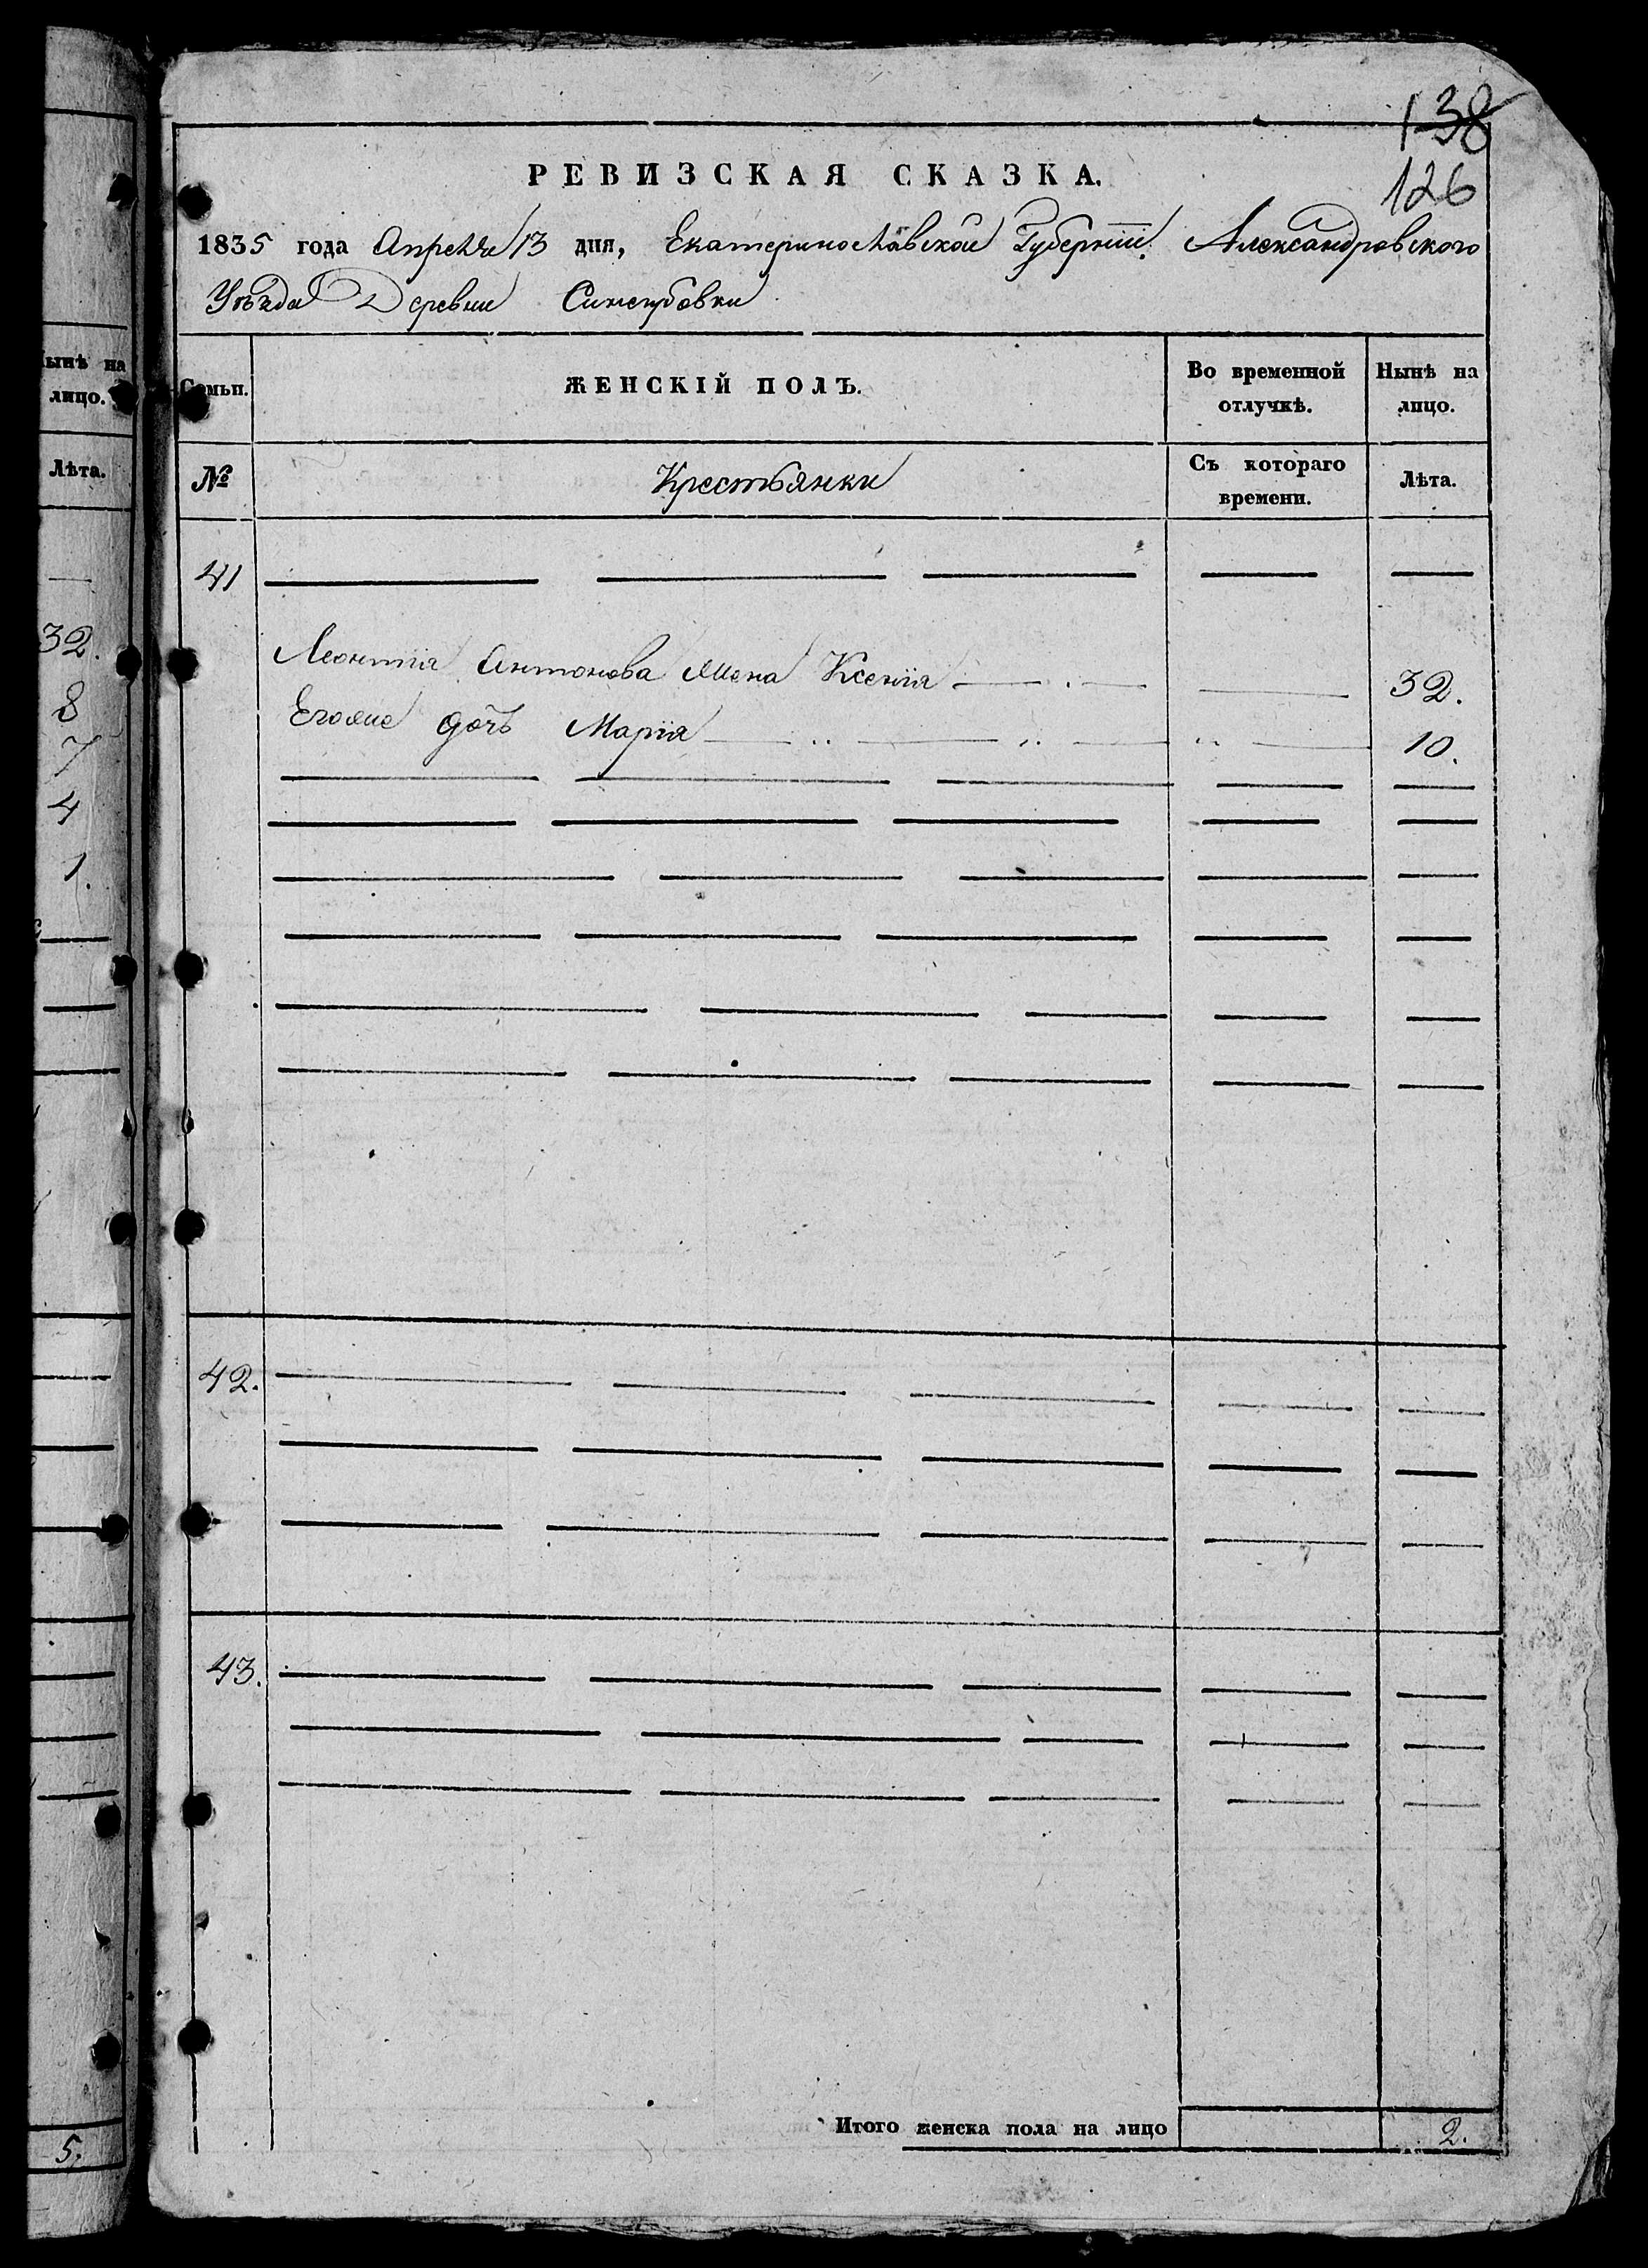 138
126
РЕВИЗСКАЯ СКАЗКА.
1835 года Апреля 13 дня, Екатеринославской Губерніи. Александровского
Уѣзда Деревни
Семьи.
ЖЕНСКІЙ ПОЛЪ.
Во временной отлучкѣ.
Нынѣ на лицо.
№
Крестьянки
Съ котораго времени.
Лѣта.
41
Леонтія Антонова Жена Ксенія 32.
Егоже дочь Марія 10.
42.
43.
Итого женска пола на лицо 2.
ынѣ на
лицо.
Лѣта.
32.
8
7
4
1.
5.